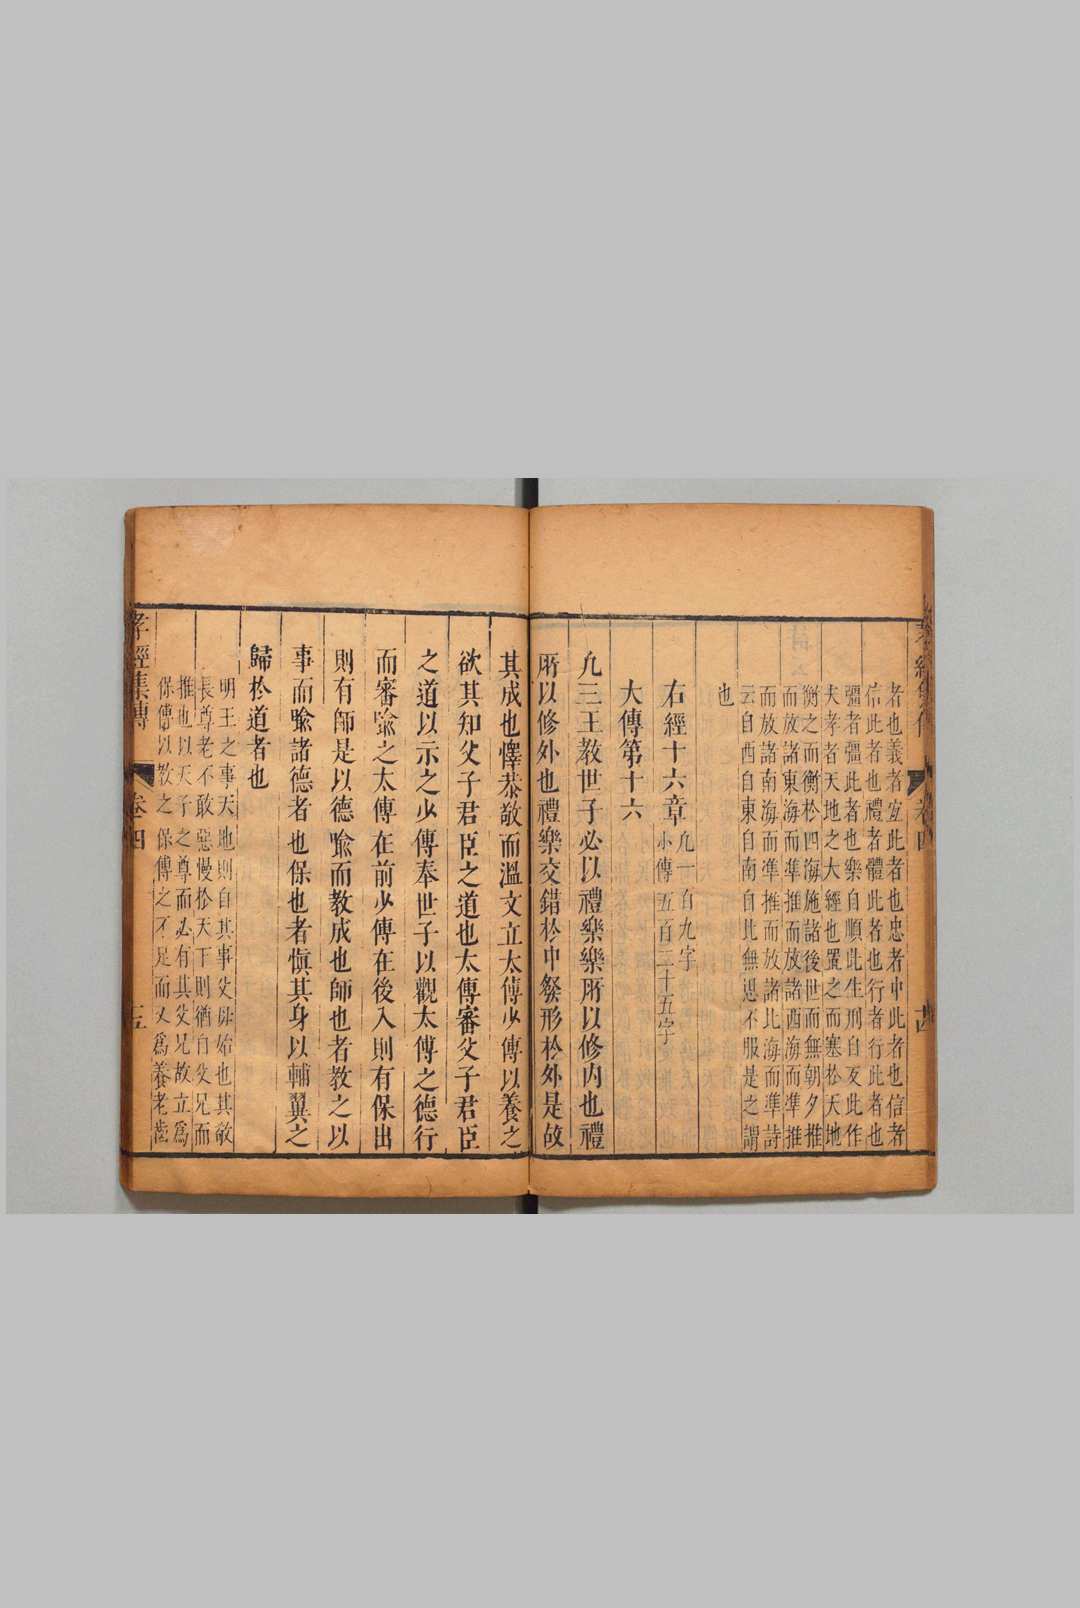 者也義者宜此者也忠者中此者也信者
信此者也禮者體此者也行者行此者也
彊者彊此者也樂自順此生刑自反此作
夫孝者天地之大經也置之而塞於天地
衡之而衡於四海施諸後世而無朝夕推
而放諸東海而準推而放諸西海而準推
而放諸南海而準推而放諸北海而準詩
云自西自東自南自北無思不服是之謂
也
右經十六章凡一百九字
小傳五百三十五字
大傳第十六
凡三王教世子必以禮樂樂所以修內也禮
所以修外也禮樂交錯於中發形於外是故
其成也懌恭敬而溫文立太傅少傅以養之
欲其知父子君臣之道也太傅審父子君臣
之道以示之少傅奉世子以觀太傅之德行
而審喻之太傅在前少傅在後入則有保出
則有師是以德喻而教成也師也者教之以
事而喻諸德者也保也者慎其身以輔翼之
歸於道者也
明王之事天地則自其事父母始也其敬
長尊老不敢惡慢於天下則猶自父兄而
推也以天子之尊而必有其父兄故立爲
保傅以教之保傅之不足而又爲養老齒
孝經集傳
卷四
十五
卷四
十四